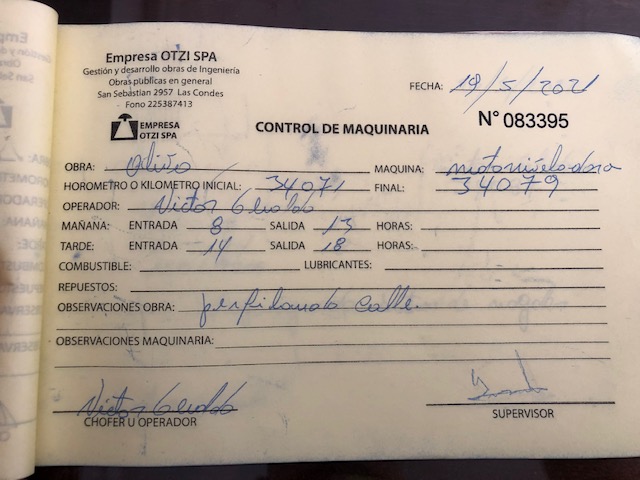 Empresa OTZI SPA
Gestión y desarrollo obras de Ingeniería
Obras públicas en general
San Sebastián 2957 Las Condes
Fono 225387413
FECHA: 19/5/2021
EMPRESA
OTZI SPA
CONTROL DE MAQUINARIA
N° 083395
OBRA: MAQUINA: motoniveladora
HOROMETRO O KILOMETRO INICIAL: 34071 FINAL: 34079
OPERADOR: Victor
MAÑANA: ENTRADA 8 SALIDA 13 HORAS:
TARDE: ENTRADA 14 SALIDA 18 HORAS:
COMBUSTIBLE: LUBRICANTES:
REPUESTOS:
OBSERVACIONES OBRA: perfilando calle.
OBSERVACIONES MAQUINARIA:
Victor
CHOFER U OPERADOR
SUPERVISOR